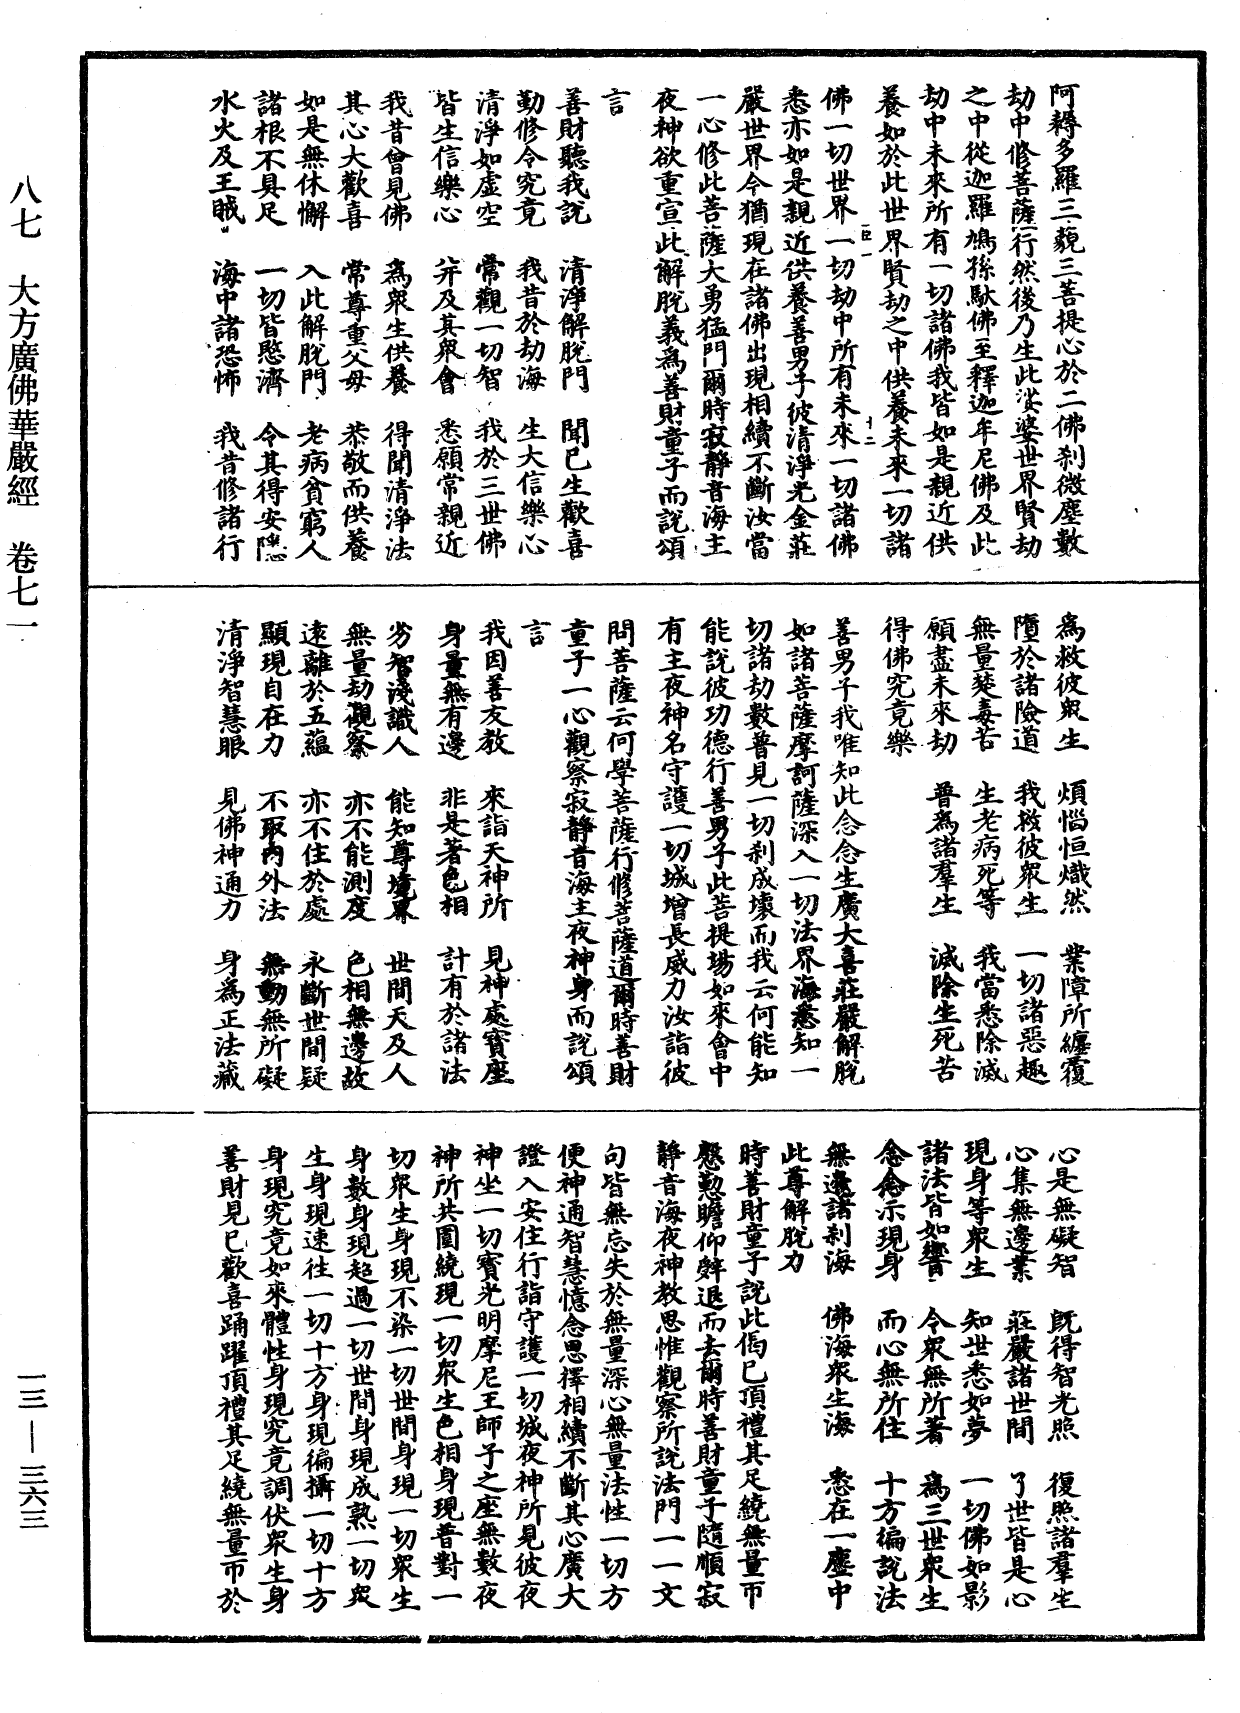 阿耨多羅三藐三菩提心於二佛刹微塵數
劫中修菩薩行然後乃生此娑婆世界賢劫
之中從迦羅鳩孫馱佛至釋迦牟尼佛及此
劫中未來所有一切諸佛我皆如是親近供
養如於此世界賢劫之中供養未來一切諸
佛一切世界一切劫中所有未來一切諸佛
悉亦如是親近供養善男子彼清淨光金莊
嚴世界今猶現在諸佛出現相續不斷汝當
一心修此菩薩大勇猛門爾時寂靜音海主
夜神欲重宣此解脫義為善財童子而說頌
言
善財聽我說　清淨解脫門　聞已生歡喜
勤修令究竟　我昔於劫海　生大信樂心
清淨如虛空　常觀一切智　我於三世佛
皆生信樂心　并及其眾會　悉願常親近
我昔曾見佛　為眾生供養　得聞清淨法
其心大歡喜　常尊重父母　恭敬而供養
如是無休懈　入此解脫門　老病貧窮人
諸根不具足　一切皆愍濟　令其得安隱
水火及王賊　海中諸恐怖　我昔修諸行
為救彼眾生　煩惱恒熾然　業障所纏覆
墮於諸險道　我救彼眾生　一切諸惡趣
無量楚毒苦　生老病死等　我當悉除滅
願盡未來劫　普為諸羣生　滅除生死苦
得佛究竟樂
善男子我唯知此念念生廣大喜莊嚴解脫
如諸菩薩摩訶薩深入一切法界海悉知一
切諸劫數普見一切刹成壞而我云何能知
能說彼功德行善男子此菩提場如來會中
有主夜神名守護一切城增長威力汝詣彼
問菩薩云何學菩薩行修菩薩道爾時善財
童子一心觀察寂靜音海主夜神身而說頌
言
我因善友教　來詣天神所　見神處寶座
身量無有邊　非是著色相　計有於諸法
劣智淺識人　能知尊境界　世間天及人
無量劫觀察　亦不能測度　色相無邊故
遠離於五蘊　亦不住於處　永斷世間疑
顯現自在力　不取內外法　無動無所礙
清淨智慧眼　見佛神通力　身為正法藏
心是無礙智　既得智光照　復照諸羣生
心集無邊業　莊嚴諸世間　了世皆是心
現身等眾生　知世悉如夢　一切佛如影
諸法皆如響　令眾無所著　為三世眾生
念念示現身　而心無所住　十方徧說法
無邊諸刹海　佛海眾生海　悉在一塵中
此尊解脫力
時善財童子說此偈已頂禮其足繞無量帀
慇懃瞻仰辭退而去爾時善財童子隨順寂
靜音海夜神教思惟觀察所說法門一一文
句皆無忘失於無量深心無量法性一切方
便神通智慧憶念思擇相續不斷其心廣大
證入安住行詣守護一切城夜神所見彼夜
神坐一切寶光明摩尼王師子之座無數夜
神所共圍繞現一切眾生色相身現普對一
切眾生身現不染一切世間身現一切眾生
身數身現超過一切世間身現成熟一切眾
生身現速往一切十方身現徧攝一切十方
身現究竟如來體性身現究竟調伏眾生身
善財見已歡喜踊躍頂禮其足繞無量帀於
八七　大方廣佛華嚴經　卷七一
一三—三六三